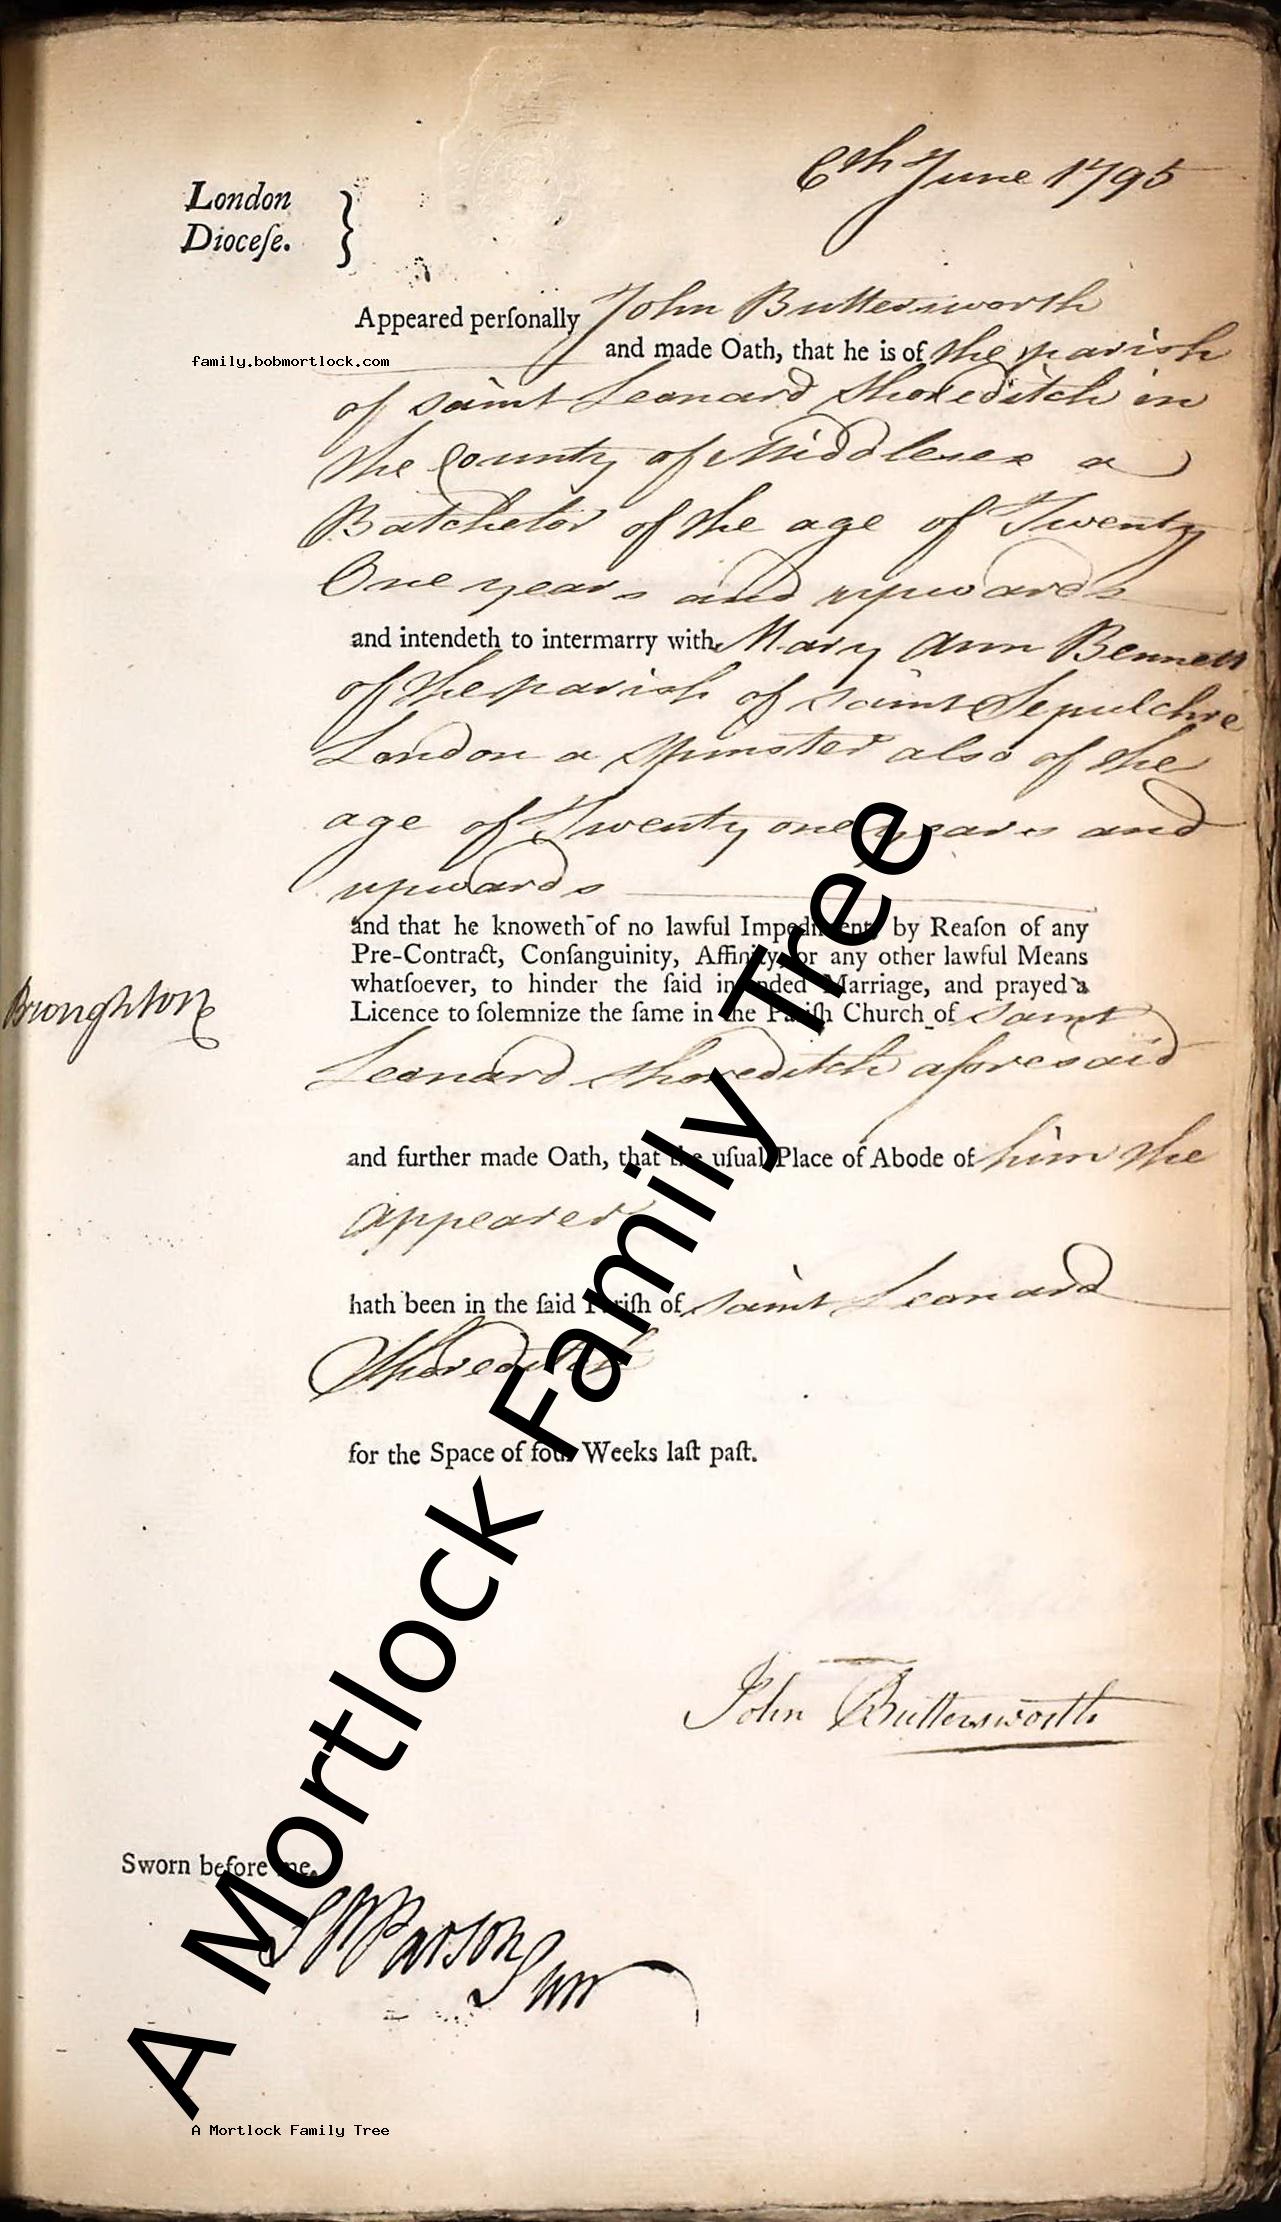 6th June 1795
London
Dioceſe.
Appeared perſonally John Buttersworth
family.bobmortlock.com
and made Oath, that he is of the parish
of saint Leonard Shoreditch in
the County of Middlesex a
Batchelor of the age of Twenty
One years and upwards
and intendeth to intermarry with Mary Ann Bennett
of the parish of saint Sepulchre
London a Spinster also of the
age of Twenty one years and
upwards
and that he knoweth of no lawful Impediment, by Reaſon of any
Pre-Contract, Conſanguinity, Affinity, or any other lawful Means
whatſoever, to hinder the ſaid intended Marriage, and prayed a
Licence to ſolemnize the ſame in the Pariſh Church of saint
Broughton
Leonard Shoreditch aforesaid
and further made Oath, that the uſual Place of Abode of him the
appearer
hath been in the ſaid Pariſh of saint Leonard
Shoreditch
for the Space of four Weeks laſt paſt.
John Buttersworth
Sworn before me,
Parson
Surr
A Mortlock Family Tree
A Mortlock Family Tree